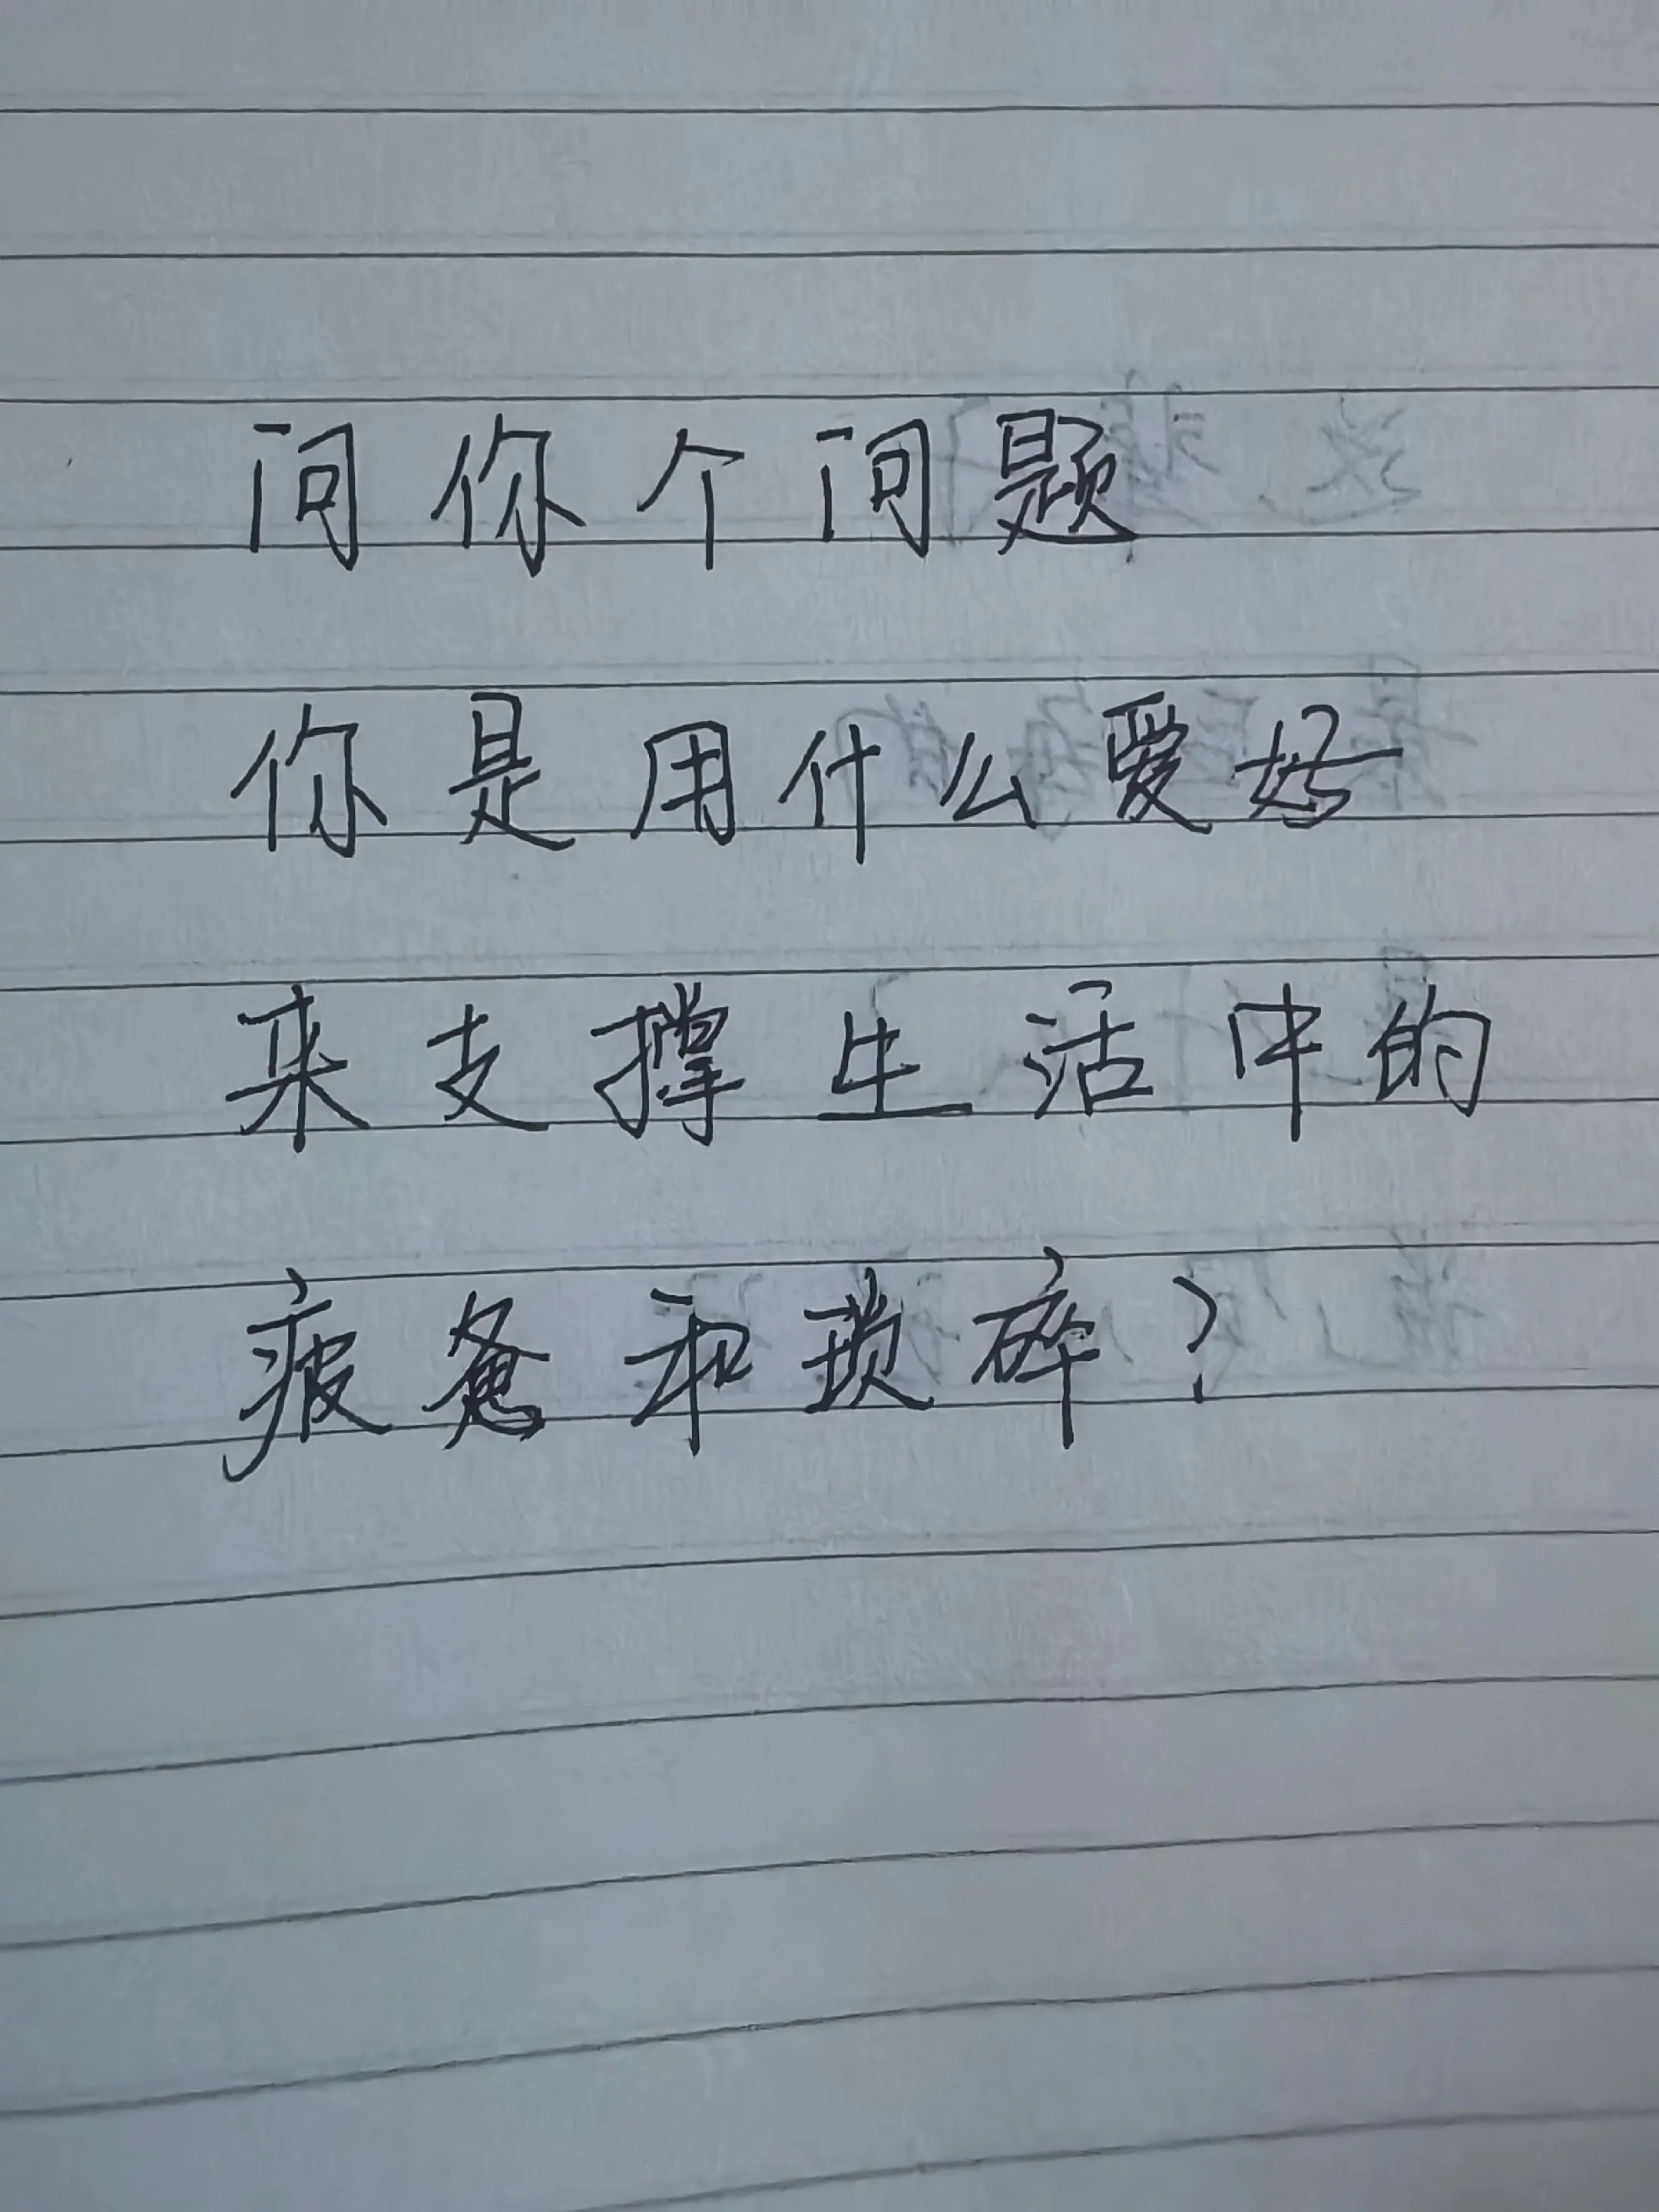 问你个问题
你是用什么爱好
来支撑生活中的
疲惫和琐碎?